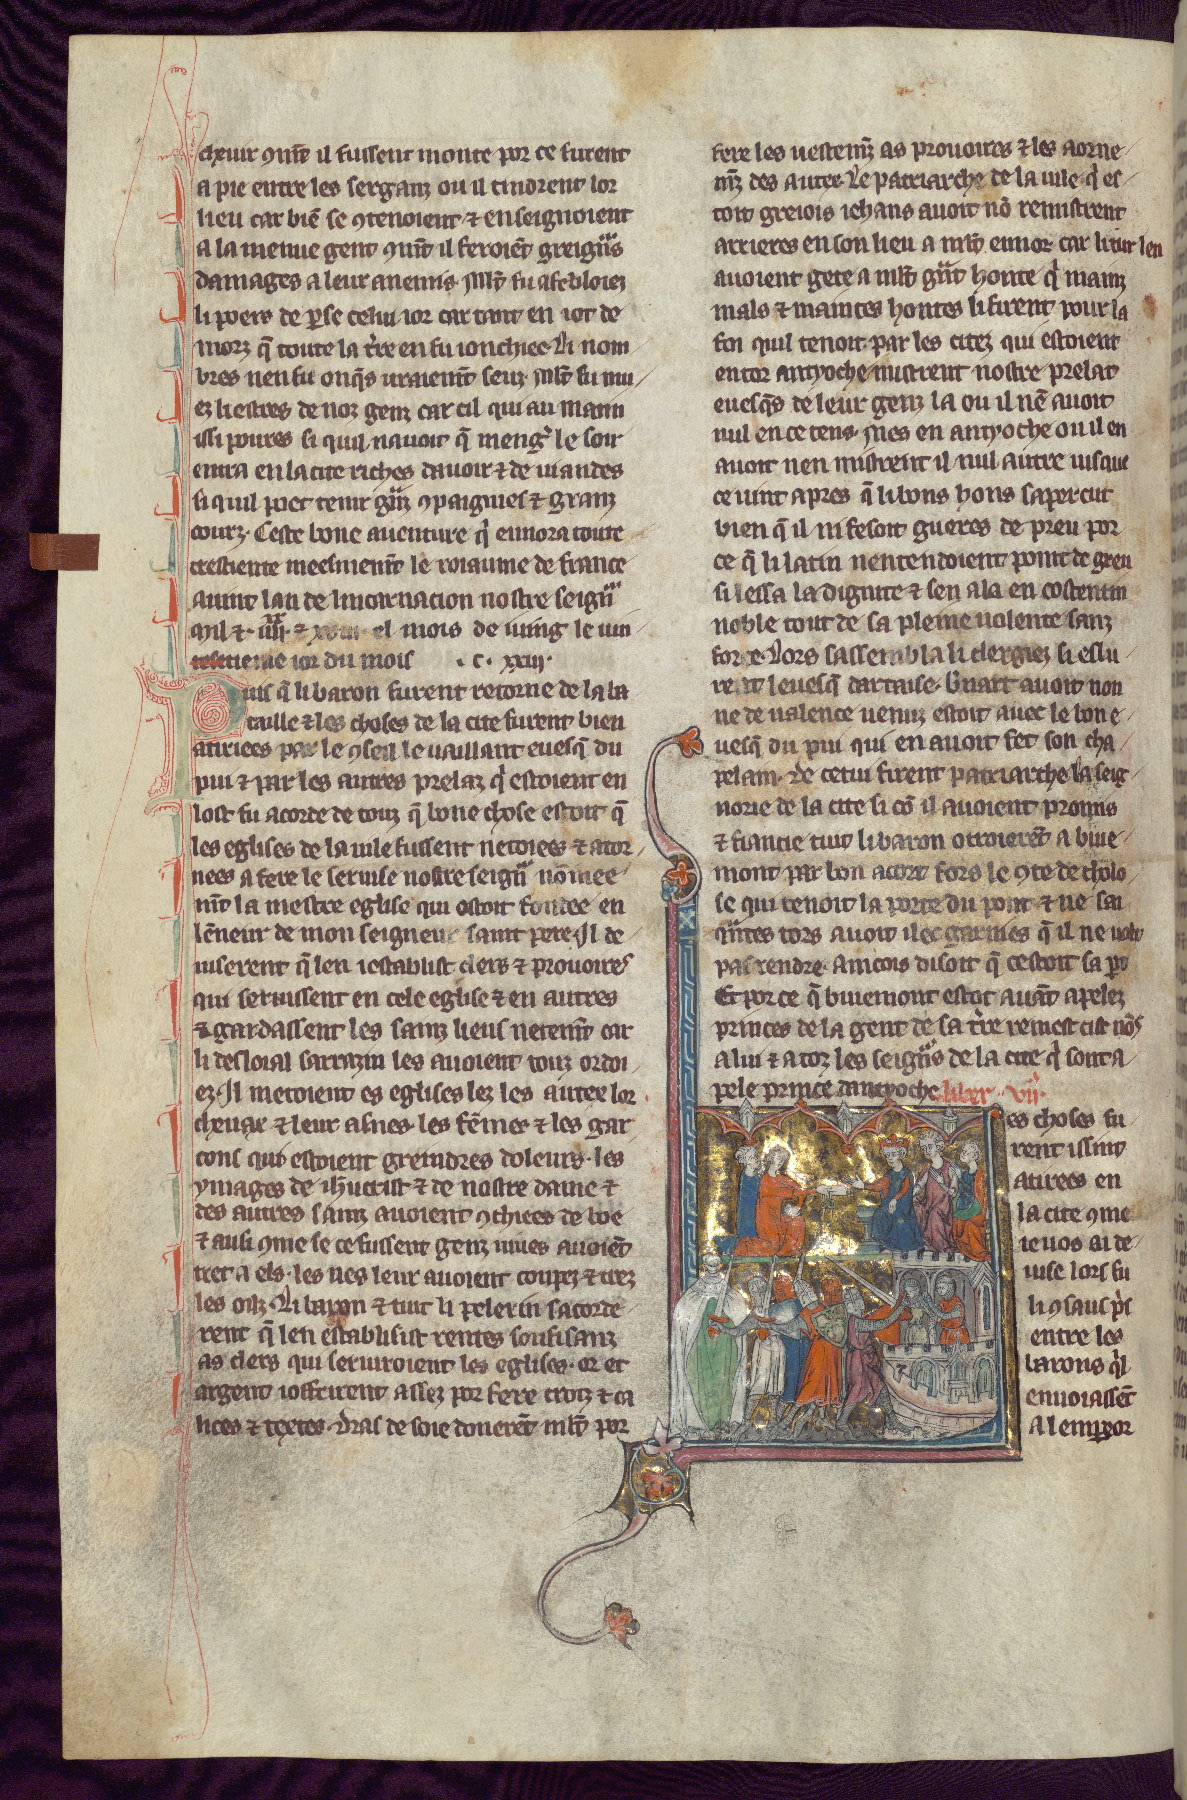 cheuir qm̄t il fussent monte por ce furent
a pie entre les serganz ou il tindrent lor
lieu car biē se 9tenoient ⁊ enseignoient
a la menue gent 9m̄t il feroiēt greign̄s
damages a leur anemis. Ml̄t fu afebloiez
li poers de p̱se celui ior car tant en iot de
morz q̄ toute la t̄re en fu ionchiee. Li nom
bres nen fu onq̄s uraiem̄t seuz. Ml̄t fu mu
ez li estres de noz genz car cil qui au matin
issi poures si quil nauoit q̄ menḡ le soir
entra en la cite riches dauoir ⁊ de uiandes
si quil poet tenir ḡnz 9paignies ⁊ granz
courz. Ceste bone auenture q̄ ennora toute
crestiente meesmem̄t le roiaume de france
auint lan de lincarnacion nostre seign̄
Mil ⁊ .iiii. ⁊ xviii el mois de iuing le uin
tieme ior du mois .c. xxiii.
Puis q̄ li baron furent retorne de la ba
taille ⁊ les choses de la cite furent bien
atiriees par le 9seil le uaillant euesq̄ du
pui ⁊ par les autres prelaz q̄ estoient en
lost fu acorde de touz q̄ bone chose estoit q̄
les eglises de la uile fussent netoiees ⁊ ator
nees a fere le seruise nostre seign̄ nōmee
m̄t la mestre eglise qui estoit fondee en
lēneur de mon seigneur saint pere. Il de
uiserent q̄ len i establist clers ⁊ prouoires
qui seruissent en cele eglise ⁊ en autres
⁊ gardassent les sainz lieus netem̄t car
li desloial sarrazin les auoient touz ordoi
ez. Il metoient es eglises lez les autex lor
cheuax ⁊ leur asnes. les fēmes ⁊ les gar
cons qui estoient greindres doleurs. les
ymages de ih̄ucrist ⁊ de nostre dame ⁊
des autres sainz auoient 9chiees de boe
⁊ ausi 9me se ce fussent genz uiues auoiēt
tret a els. les nes leur auoient coupez ⁊ trez
les oilz. Li baron ⁊ tuit li pelerin sacorde
rent q̄ len establisist rentes soufisanz
as clers qui seruiroient les eglises. or et
argent i offrirent assez por fere croiz ⁊ ca
lices ⁊ textes. dras de soie donerēt ml̄t por
fere les uestem̄z as prouoires ⁊ les aorne
m̄z des autex. Le patriarche de la uile q̄ es
toit grezois iehans auoit nō remistrent
arrieres en son lieu a ml̄t ennor. car li tur len
auoient gete a ml̄t ḡnt honte q̄ mainz
mals ⁊ maintes hontes li firent pour la
foi quil tenoit. par les citez qui estoient
entor antyoche mistrent nostre prelat
euesq̄s de leur genz la ou il nē auoit
nul en ce tens. Mes en antyoche ou il en
auoit nen mistrent il nul autre iusque
ce uint apres q̄ li bons hons sapercut
bien q̄ il ni fesoit gueres de preu por
ce q̄ li latin nentendoient point de greu
si lessa la dignite ⁊ sen ala en costentin
noble tout de sa pleine uolente sanz
force. Lors sassembla li clergiez si eslu
rent leuesq̄ dartaise. bnart auoit non
ne de ualence uenuz estoit auec le bon e
uesq̄ du pui qui en auoit fet son cha
pelain. De cetui firent patriarche la seig
norie de la cite si cō il auoient promis
⁊ fiancie tuit li baron otroierēt a buie
mont par bon acort fors le 9te de tholo
se qui tenoit la porte du pont ⁊ ne sai
q̄ntes tors auoit ilec garnies q̄ il ne uolt
pas rendre. ancois disoit q̄ cestoit sa p̱t
Et por ce q̄ buiemont estoit auāt apelez
princes de la gent de sa t̄re remest cist nōs
a lui ⁊ a toz les seign̄s de la cite q̄ sont a
pele prince dantyoche. liber .vii.
es choses fu
rent issint
atirees en
la cite 9me
ie uos ai de
uise lors fu
li 9sauz p̄s
entre les
barons q̄l
enuoiassēt
a lempeor